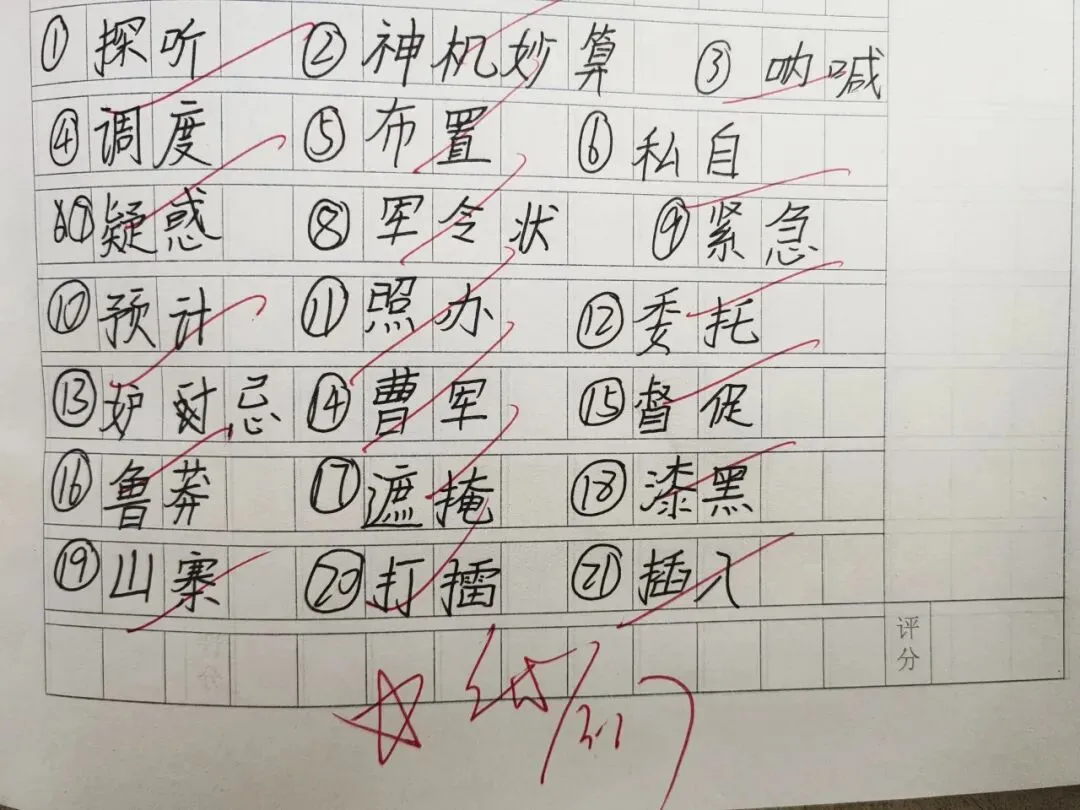 ① 探听 ② 神机妙算 ③ 呐喊
④ 调度 ⑤ 布置 ⑥ 私自
⑦ 疑惑 ⑧ 军令状 ⑨ 紧急
⑩ 预计 ⑪ 照办 ⑫ 委托
⑬ 妒忌 ⑭ 曹军 ⑮ 督促
⑯ 鲁莽 ⑰ 遮掩 ⑱ 漆黑
⑲ 山寨 ⑳ 打擂 ㉑ 插入
评分